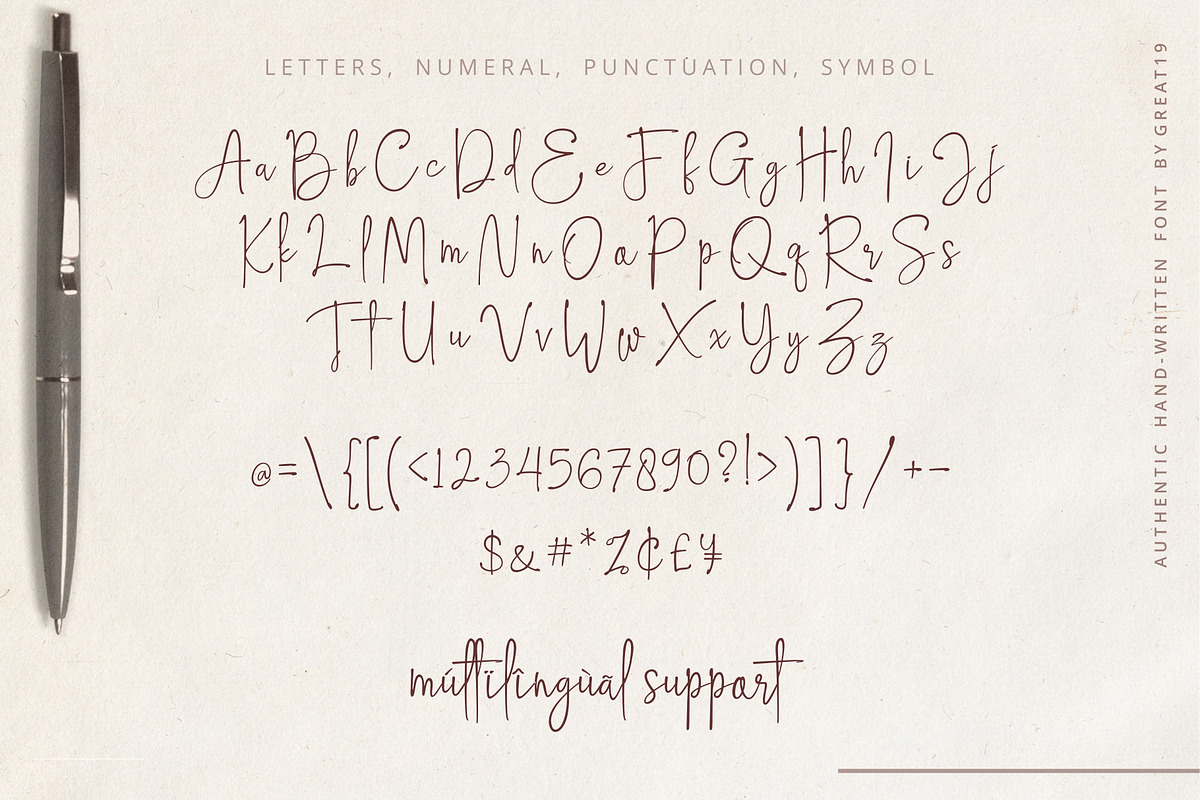 LETTERS, NUMERAL, PUNCTÙATION, SYMBOL
AaBbCcDdEeFfGgHhIiJj
KkLlMmNnOoPpQqRrSs
TtUuVvWwXxYyZz
@=\{[(<1234567890?!>)]}/+-
$&#*%¢£¥
múltïlîngùãl support
AUTHENTIC HAND-WRITTEN FONT BY GREAT19